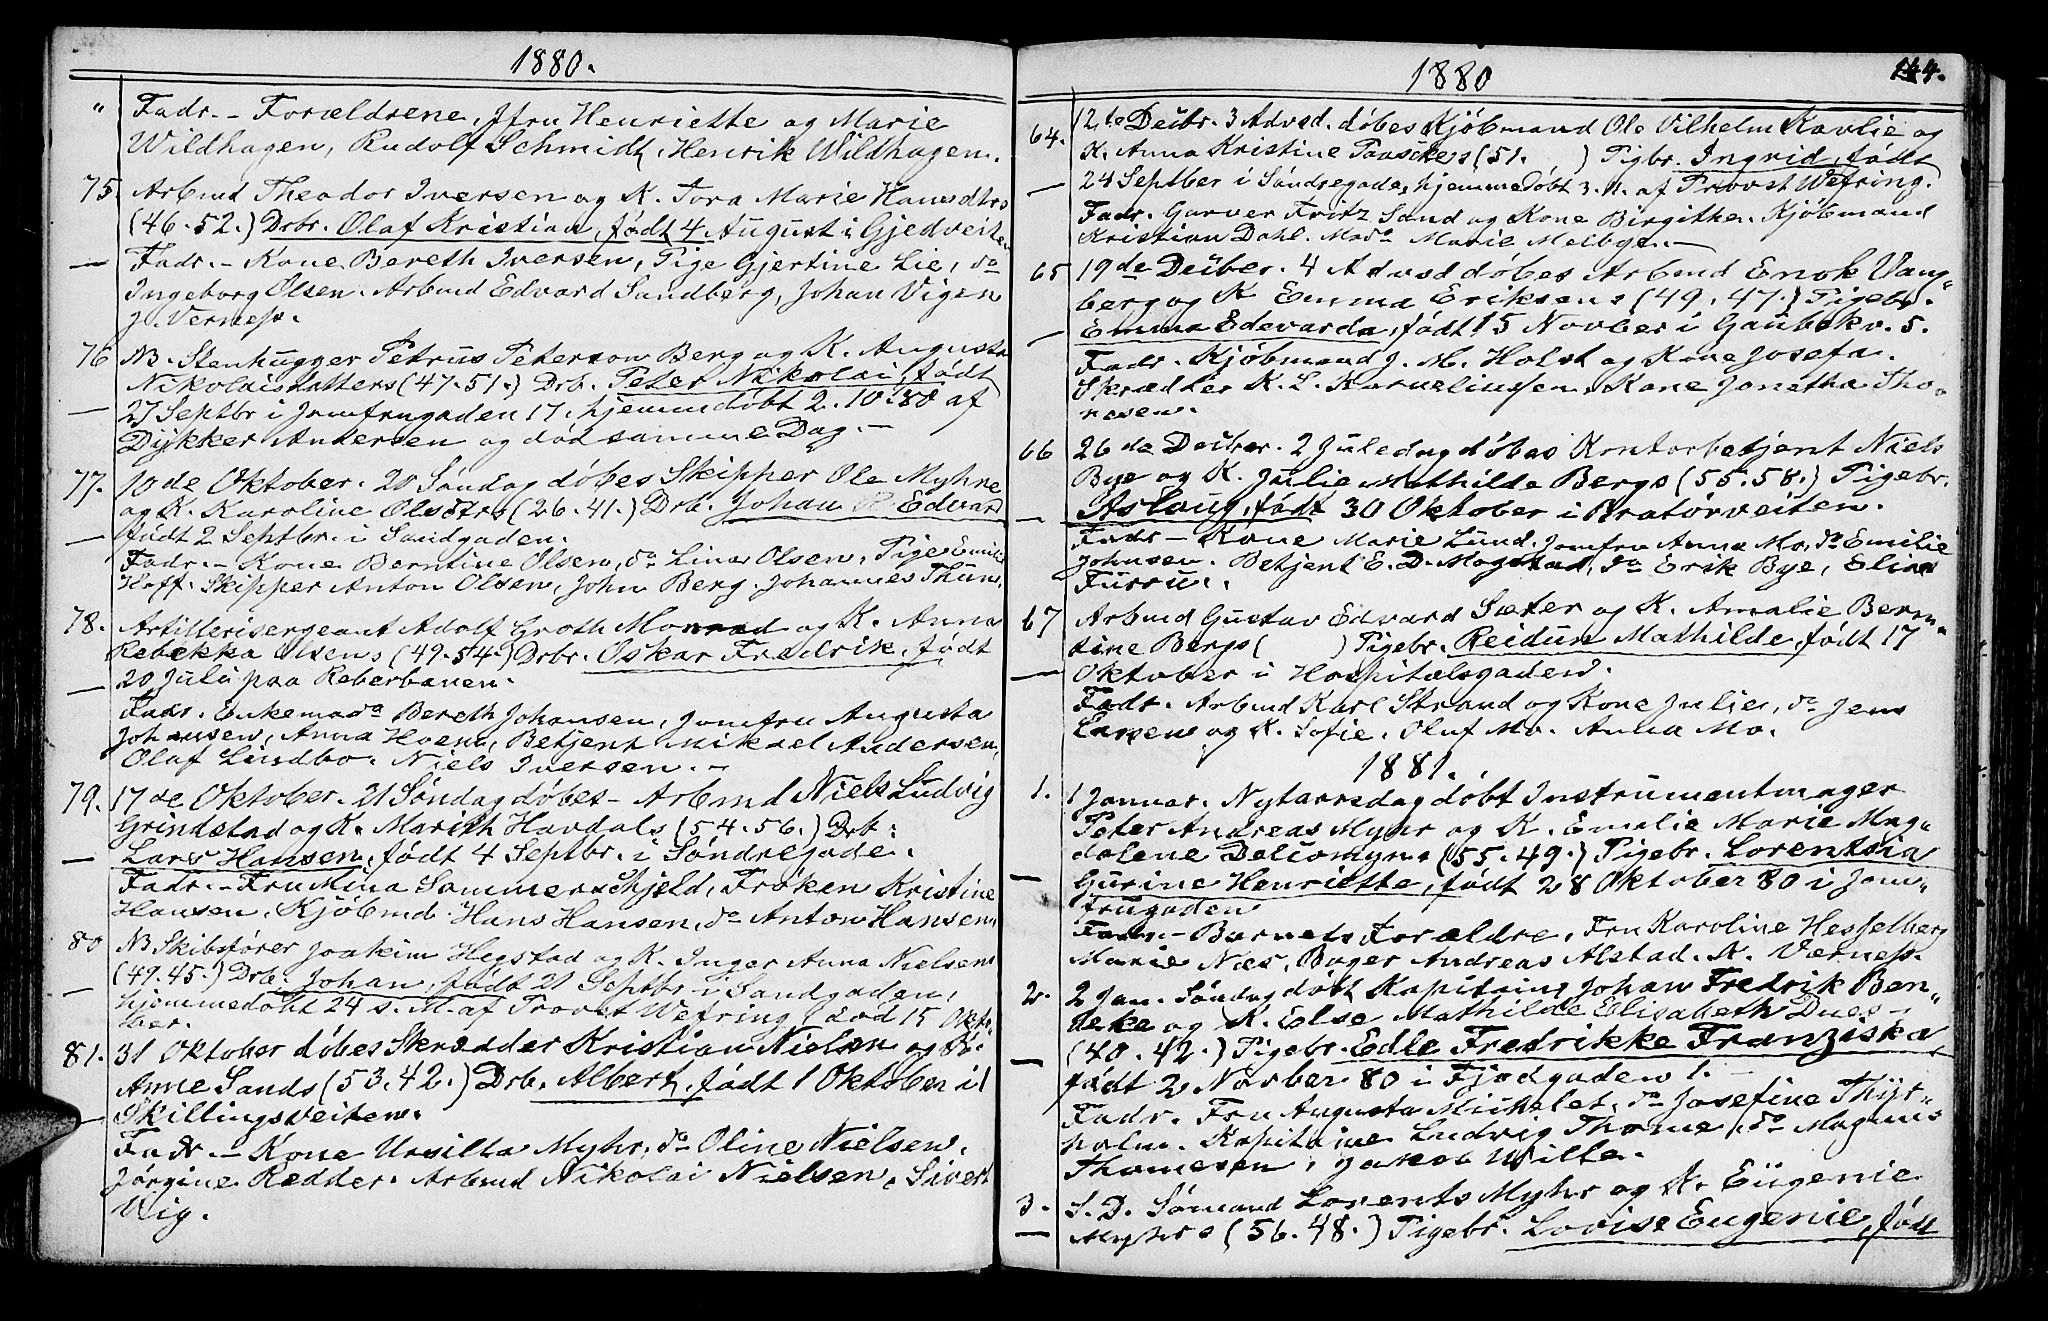 1880.
" Fadr. – Forældrene, Jfru Henriette og Marie
Wildhagen, Rudolf Schmidt, Henrik Wildhagen.
75. Arbmd Theodor Iversen og K. Tora Marie Hansdtrs
(46.52.) Drbr. Olaf Kristian, født 4 August i Gjedveiten
— Fadr. – Kone Bereth Iversen, Pige Gjertine Lie, do
Ingeborg Olsen. Arbmd Edvard Sundberg, Johan Vigen
J. Verness.
76 NB. Stenhugger Petrus Peterson Berg og K. Augusta
Nikolaisdatters (47.51.) Drb. Peter Nikolai, født
— 27 Septbr i Jomfrugaden 17. hjemmedøbt 2.10.80 af
Dykker Andersen og død samme Dag. –
77. 10de Oktober. 20 Søndag døbes Skipper Ole Myhre
og K. Karoline Olsdtrs (26.41.) Drb. Johan Edvard
— født 2 Septbr. i Sandgaden.
Fadr. – Kone Berntine Olsen, do Lina Olsen, Pige Emilie
Hoff. Skipper Anton Olsen, John Berg. Johannes Thun.
78. Artillerisergeant Adolf Groth Monrad og K. Anna
Rebekka Olsens (49.54.) Drbr. Oskar Fredrik, født
— 20 Juli paa Reberbanen.
Fadr. Enkemada Bereth Johansen, Jomfru Augusta
Johansen, Anna Hoem, Betjent Mikael Andersen,
Olaf Lindbo. Niels Iversen. –
79. 17de Oktober. 21 Søndag døbes – Arbmd Niels Ludvig
Grindstad og K. Marith Havdals (54.56.) Drb.
— Lars Hansen, født 4 Septbr. i Søndregade.
Fadr. – Fru Mina Sommerschjeld, Frøken Kristine
Hansen, Kjøbmd Hans Hansen, do Anton Hansen.
80 NB Skibsfører Joakim Hegstad og K. Inger Anna Nielsens
(49.45.) Drb. Johan, født 21 Septbr i Sandgaden,
— hjemmedøbt 24 s. M. af Provst Wefring (død 15 Okto-
ber.
81. 31 Oktober døbes Skrædder Kristian Nielsen og K.
Anne Sands (53.42.) Drb. Albert, født 1 Oktober i
— Skillingsveiten.
Fadr – Kone Ursilla Myhr, do Oline Nielsen.
Jørgine Redder. Arbmd Nikolai Nielsen, Sivert
Wig.
1880 144.
64. 12te Decbr. 3 Advsd. døbes Kjøbmand Ole Vilhelm Kavlie og
K. Anna Kristine Paaskes (51. ) Pigbr. Ingrid, født
— 24 Septber i Søndregade, hjemmedøbt 3.11. af Provst Wefring.
Fadr. Garver Fritz Sand og Kone Birgithe. Kjøbmand
Kristian Dahl. Mada Marie Melbye. –
65 19de Decber. 4 Advsd døbes Arbmd Enok Vang-
berg og K Emma Eriksens (49.47.) Pigebr.
— Emma Edevarda, født 15 Novber i Gaubekv. 5.
Fadr. Kjøbmand J. M. Holst og Kone Josefa.
Skrædder K. L. Kornelinssen, Kone Jonetha Tho-
nasen.
66 26de Decber. 2 Juledag døbes Kontorbetjent Niels
Bye og K. Julie Mathilde Bergs (55.58.) Pigebr.
— Aslaug, født 30 Oktober i Kratorveiten.
Fadr – Kone Marie Lund. Jomfru Anna Mo, do Emilie
Johnsen. Betjent E. D. Mogstad, do Erik Bye, Elias
Furru.
67 Arbmd Gustav Edvard Sæter og K. Amalie Bernn-
tine Bergs ( ) Pigebr. Reidun Mathilde, født 17
— Oktober i Hospitalsgaden.
Fadr. Arbmd Karl Strand og Kone Julie, do Jens
Larsen og K. Sofie. Oluf Mo. Anna Mo.
1881.
1. 1 Januar. Nytaarsdag døbt Instrumentmager
Peter Andreas Myhr og K. Emelie Marie Mag-
dalene Delcomyns (55.49.) Pigebr. Lorentsia
— Gurine Henriette, født 28 Oktober 80 i Jom-
frugaden
Fadr. – Barnets Forældre, Fru Karoline Hesselberg
Marie Næs, Bager Andreas Alstad. K. Værness.
2. 2 Jan. Søndag døbt Kapitain Johan Fredrik Ben-
neke og K. Else Mathilde Elisabeth Dues –
(40.42.) Pigebr. Edle Fredrikke Franziska
— født 2 Novber 80 i Fjodgaden 1. –
Fadr. Fru Augusta Michelet, do Josefine Thyr-
holm. Kapitaine Ludvig Thome, do Magnus
Thomesen, Jakob Wille.
3. S. D. Sømand Lorents Myhr og K. Eugenie
— Myhrs (56.48.) Pigebr. Lovise Eugenie, født